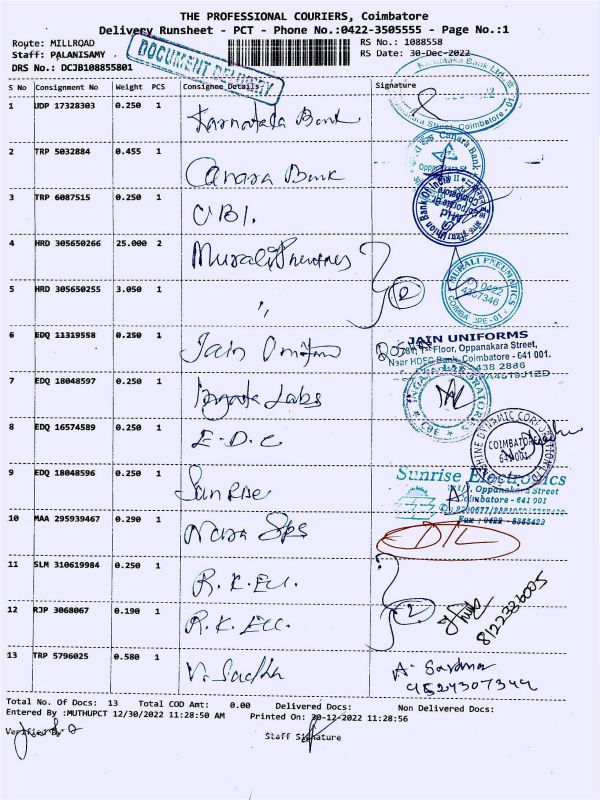 THE PROFESSIONAL COURIERS, Coimbatore
Delivery Runsheet - PCT - Phone No.:0422-3505555 - Page No.:1
Route: MILLROAD
RS No.: 1088558
Staff: PALANISAMY
RS Date: 30-Dec-2022
DRS No.: DCJB108855801
DOCUMENT DELIVERY
S No Consignment No Weight PCS Consignee Details Signature
1 UDP 17328303 0.250 1 Karnataka Bank
Karnataka Bank Ltd.
Street, Coimbatore - 01
2 TRP 5032884 0.455 1 Canara Bank
Canara Bank
3 TRP 6087515 0.250 1 UBI.
Union Bank Of India
4 HRD 305650266 25.000 2 Murali
5 HRD 305650255 3.050 1 ,,
2
MURALI PNEUMATICS
0422
4367346
6 EDQ 11319558 0.250 1 Jain
JAIN UNIFORMS
1st Floor, Oppanakara Street,
Near HDFC Bank, Coimbatore - 641 001.
7 EDQ 18048597 0.250 1 Labs
8 EDQ 16574589 0.250 1 E.D.C
COIMBATORE
641001
9 EDQ 18048596 0.250 1 Sun Rise
Sunrise Electronics
Oppanakara Street
Coimbatore - 641 001
10 MAA 295939467 0.290 1 Sps
DTL
11 SLM 310619984 0.250 1 R.K.Ell.
12 RJP 3068067 0.190 1 R.K.Ell.
2
13 TRP 5796025 0.580 1 V. Sudha
Total No. Of Docs: 13 Total COD Amt: 0.00 Delivered Docs: Non Delivered Docs:
Entered By :MUTHUPCT 12/30/2022 11:28:50 AM Printed On: 30-12-2022 11:28:56
Verified By
Staff Signature